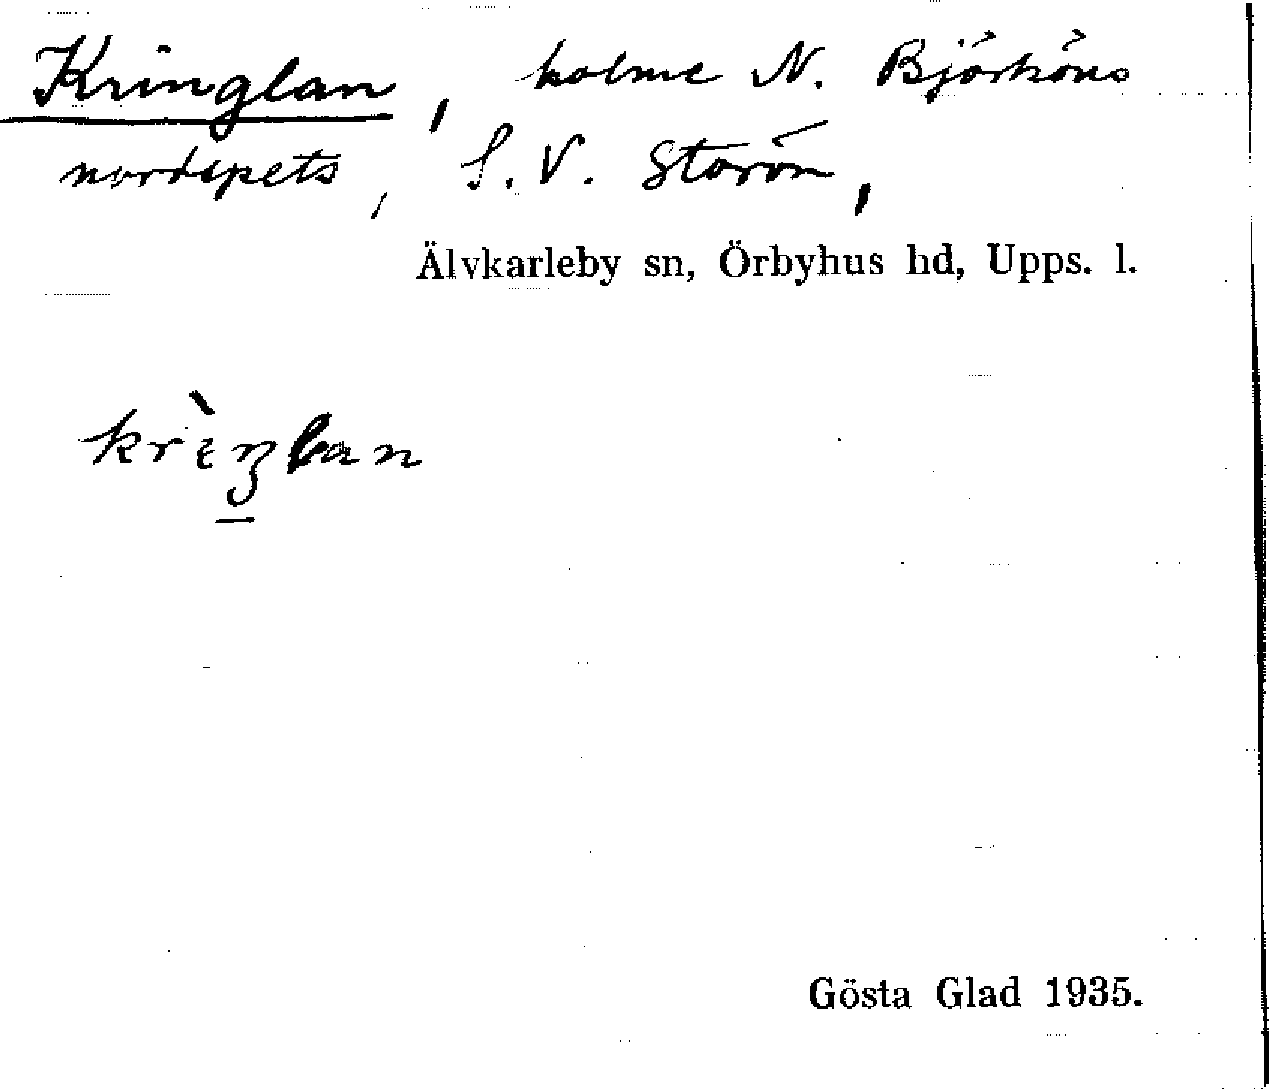 Kringlan, holme N. Björköns
nordspets, S.V. Storön,
Älvkarleby sn, Örbyhus hd, Upps. l.
krìŋlan
Gösta Glad 1935.